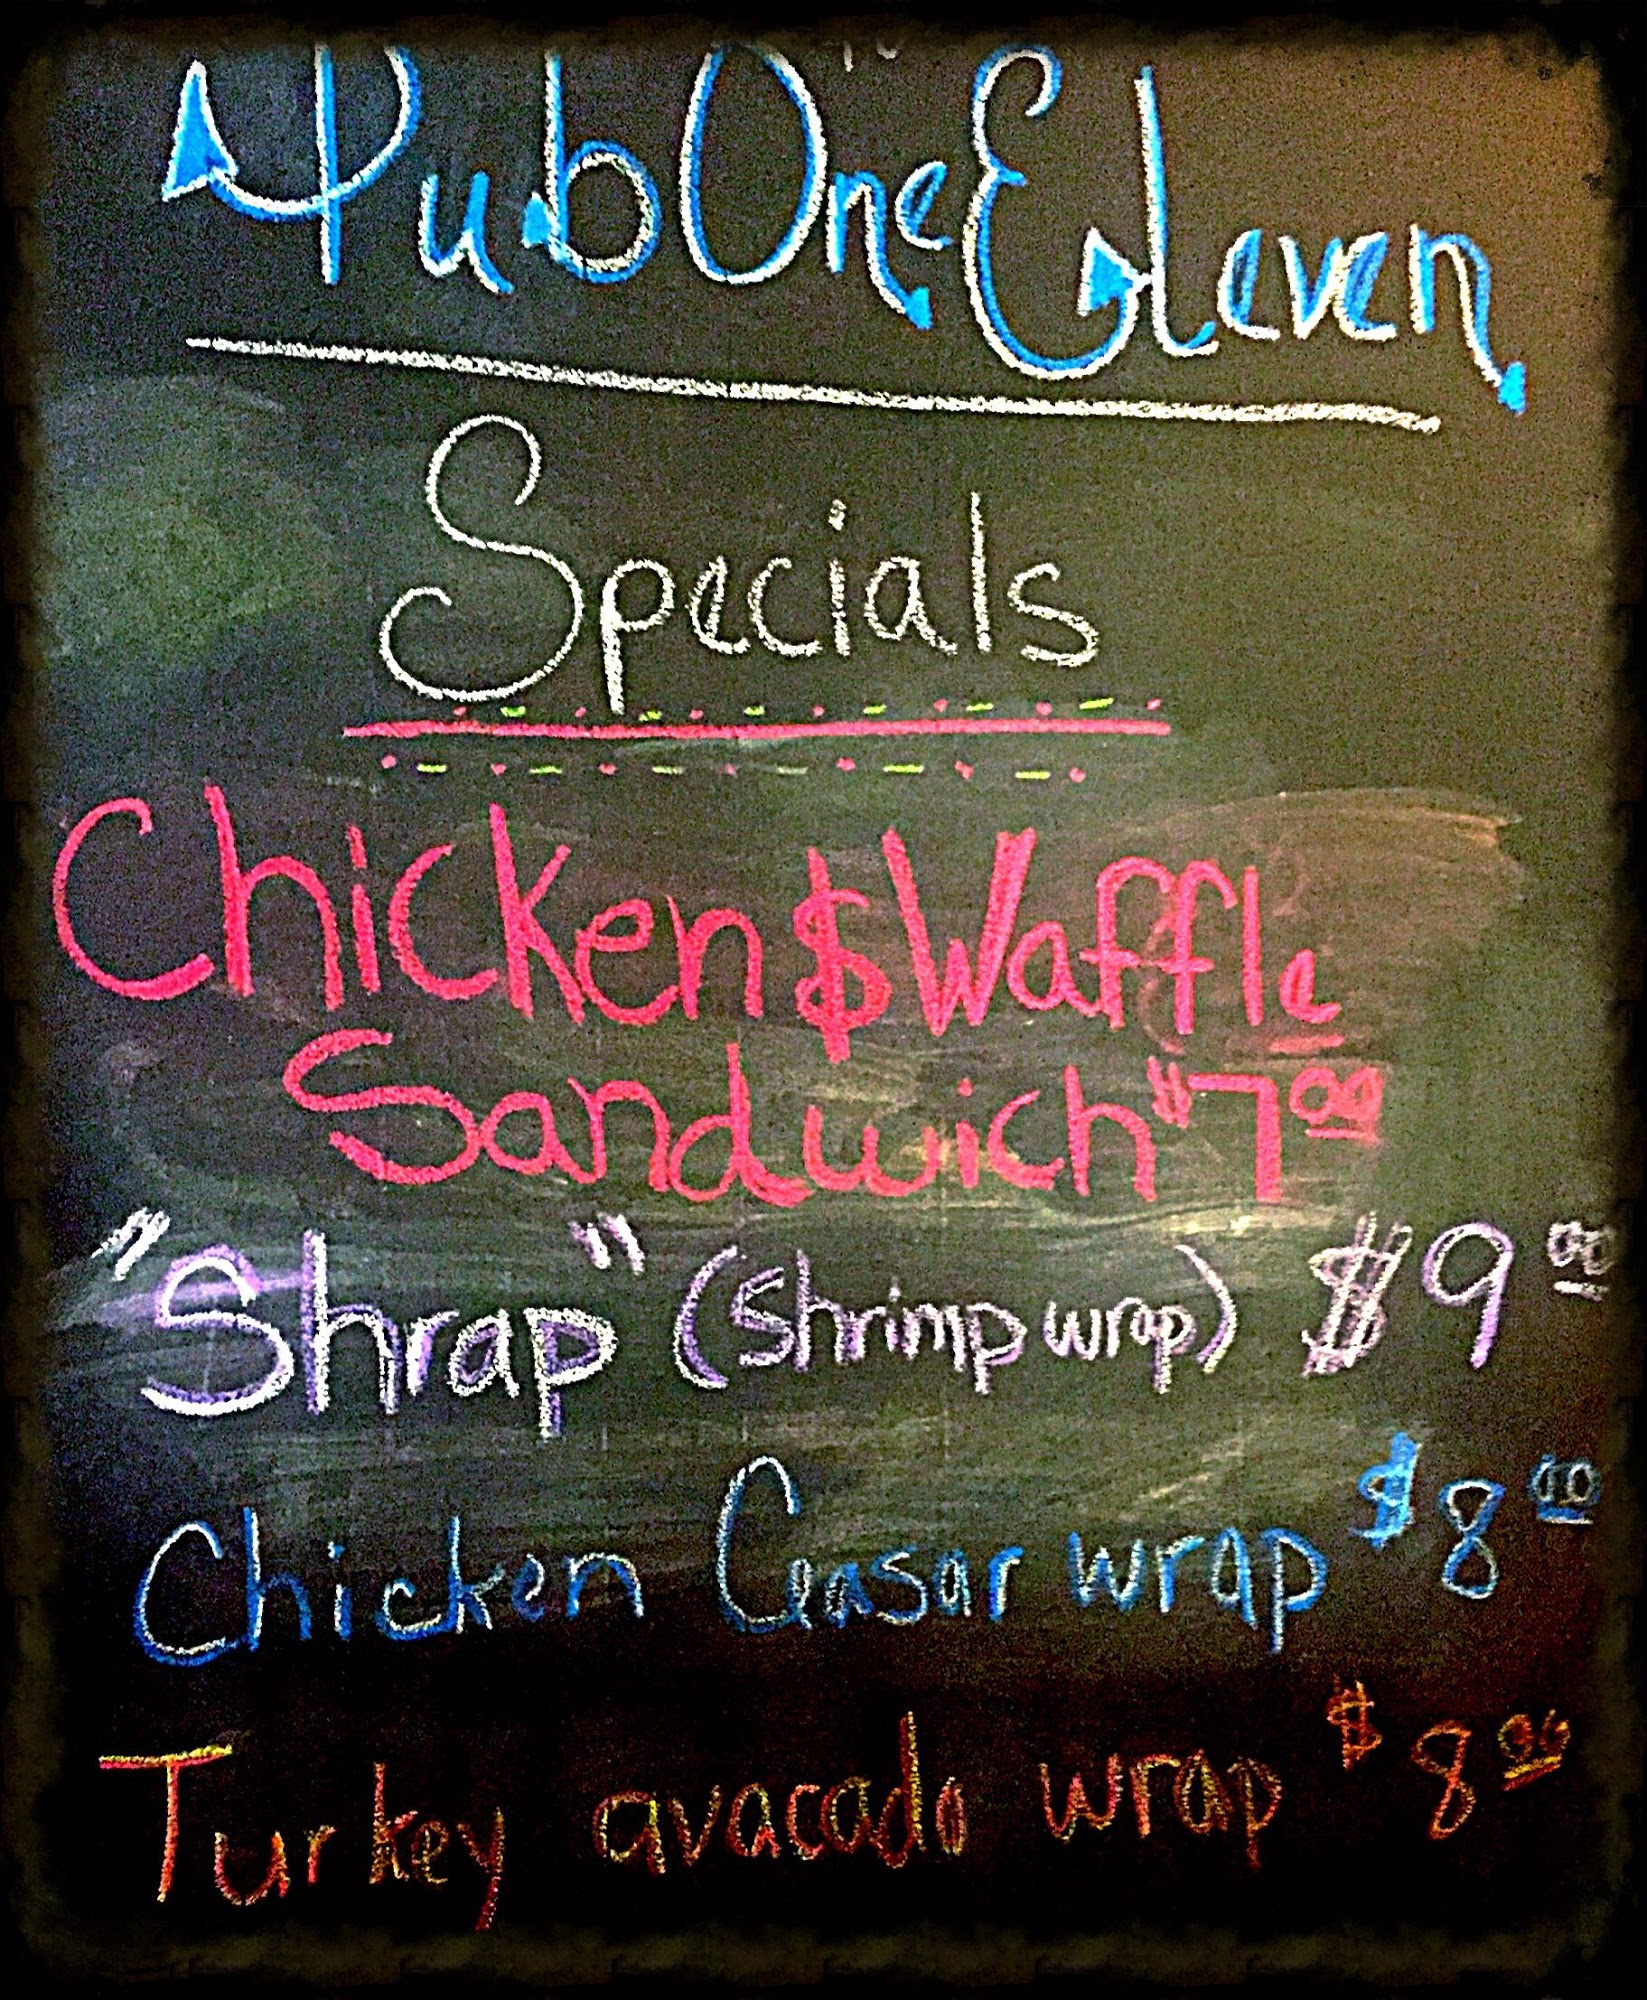 Pub One Eleven
Specials
Chicken $ Waffle
Sandwich $7.00
"Shrap" (shrimp wrap) $9.00
Chicken Ceasar wrap $8.00
Turkey avacado wrap $8.00